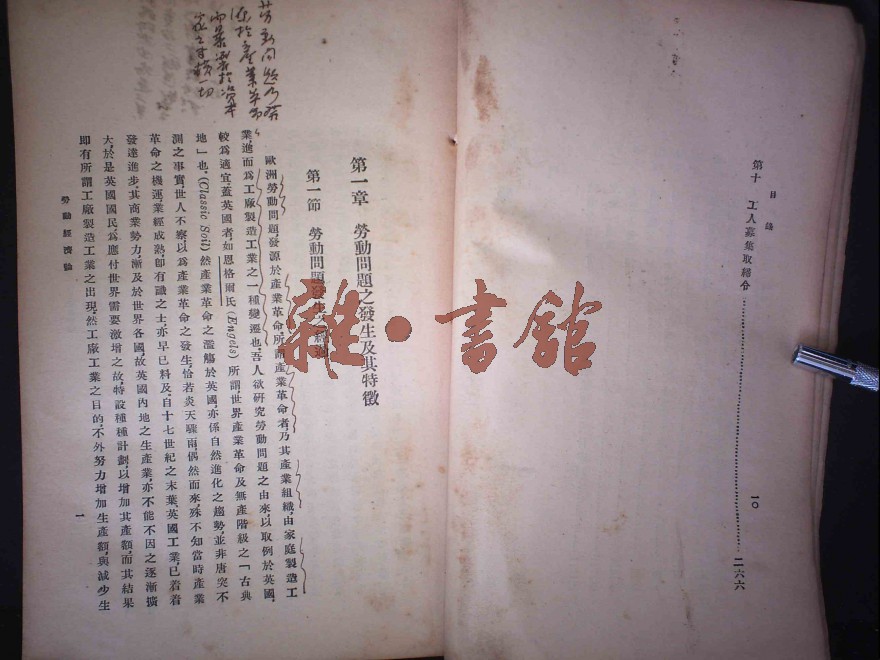 目錄
第十 工人募集取締令 二六六
一〇
勞動問題乃發
源於產業革命
第一章 勞動問題之發生及其特徵
第一節 勞動問題發生
歐洲勞動問題,發源於產業革命,所謂產業革命者,乃其產業組織,由家庭製造工
業,進而爲工廠製造工業之一種變遷也,吾人欲研究勞動問題之由來,以取例於英國,
較爲適宜,蓋英國者,如恩格爾氏(Engels)所謂,世界產業革命及無產階級之「古典
地」也。(Classic Soil)然產業革命之濫觴於英國,亦係自然進化之趨勢,並非唐突不
測之事實,世人不察,以爲產業革命之發生,恰若炎天驟雨,偶然而來,殊不知當時產業
革命之機運,業經成熟,卽有識之士,亦早已料及,自十七世紀之末葉,英國工業,已着着
發達進步,其商業勢力,漸及於世界各國,故英國內地之生產業,亦不能不因之逐漸擴
大,於是英國國民,爲應付世界需要激增之故,特設種種計劃,以增加其產額,而其結果
卽有所謂工廠製造工業之出現,然工廠工業之目的,不外努力增加生產額,與減少生
勞動經濟論
一
雜·書館